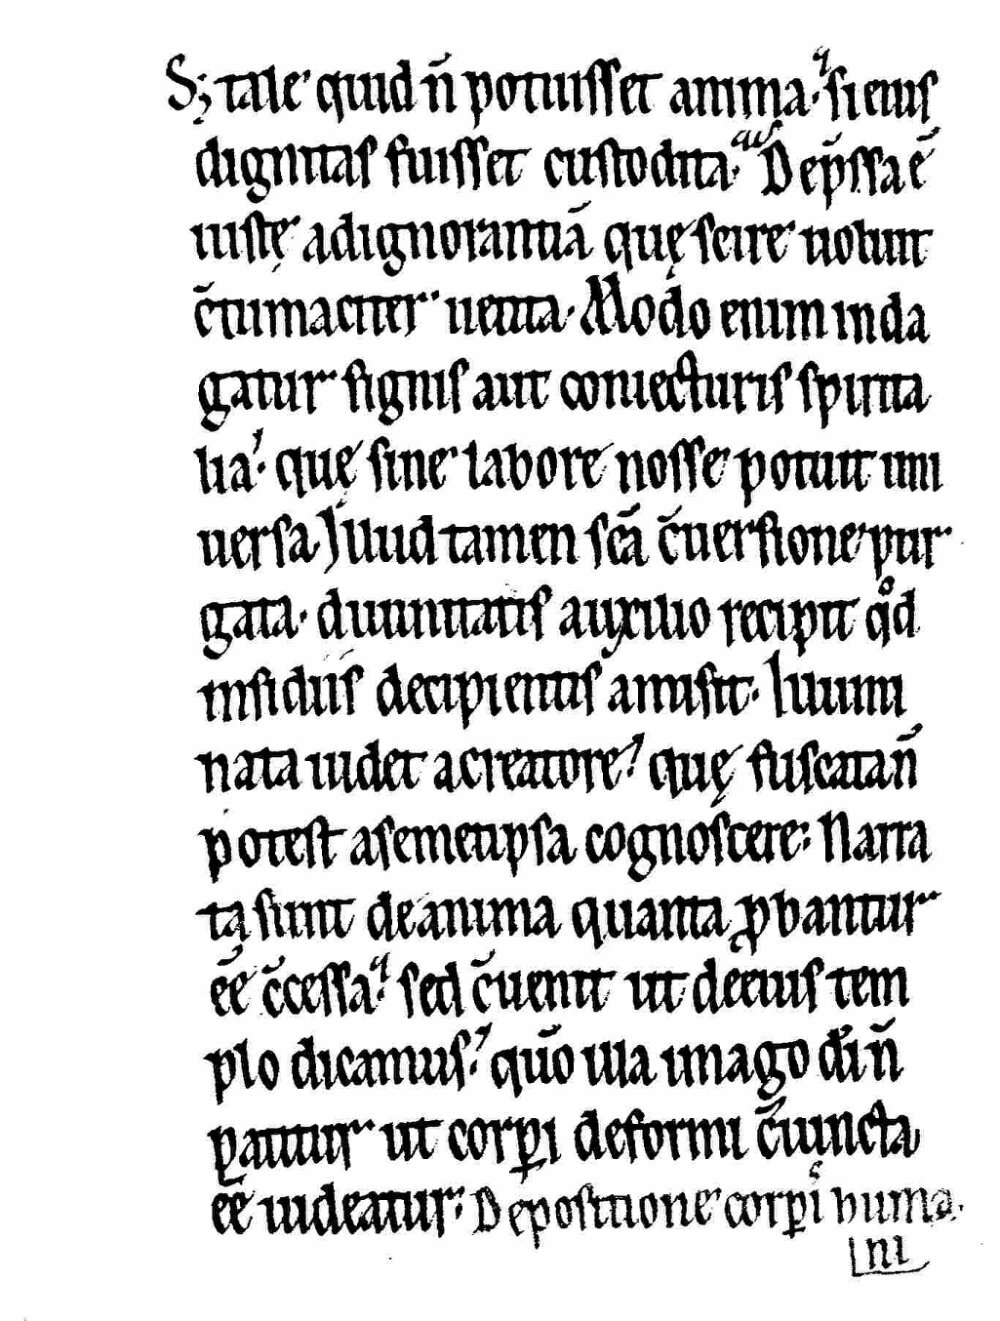 S; tale quid n̄ potuisset anima. si eius
dignitas fuisset custodita. Dep̄ssa ē
iustę ad ignorantiā quę scire noluit
c̄tumaciter uenta. Modo enim inda
gatur signis aut coniecturis spirita
lia. quę sine labore nosse potuit uni
uersa. Illud tamen scā c̄uersione pur
gata. diuinitatis auxilio recipit qd̊
insidiis decipientis amisit. Illumi
nata uidet a creatore. quę fuscata n̄
potest a semetipsa cognoscere; Narra
ta sunt de anima quanta ꝓbantur
ēē c̄cessa. sed c̄uenit ut de eius tem
plo dicamus. quō illa imago dī n̄
ꝑatitur ut corꝑi deformi c̄iuncta
ēē uideatur; De positione corꝑis huma
ni